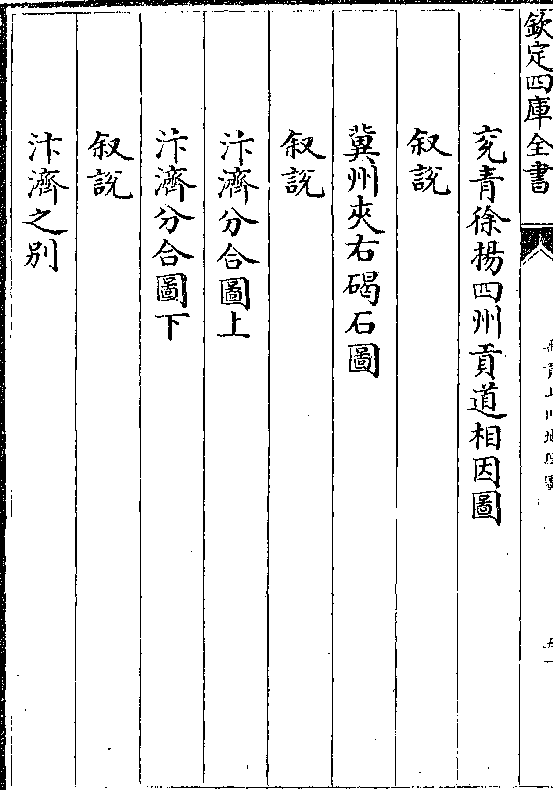 欽定四庫全書
兖青徐揚四州貢道相因圖
叙説
冀州夾右碣石圖
叙説
汴濟分合圖上
汴濟分合圖下
叙説
汴濟之别